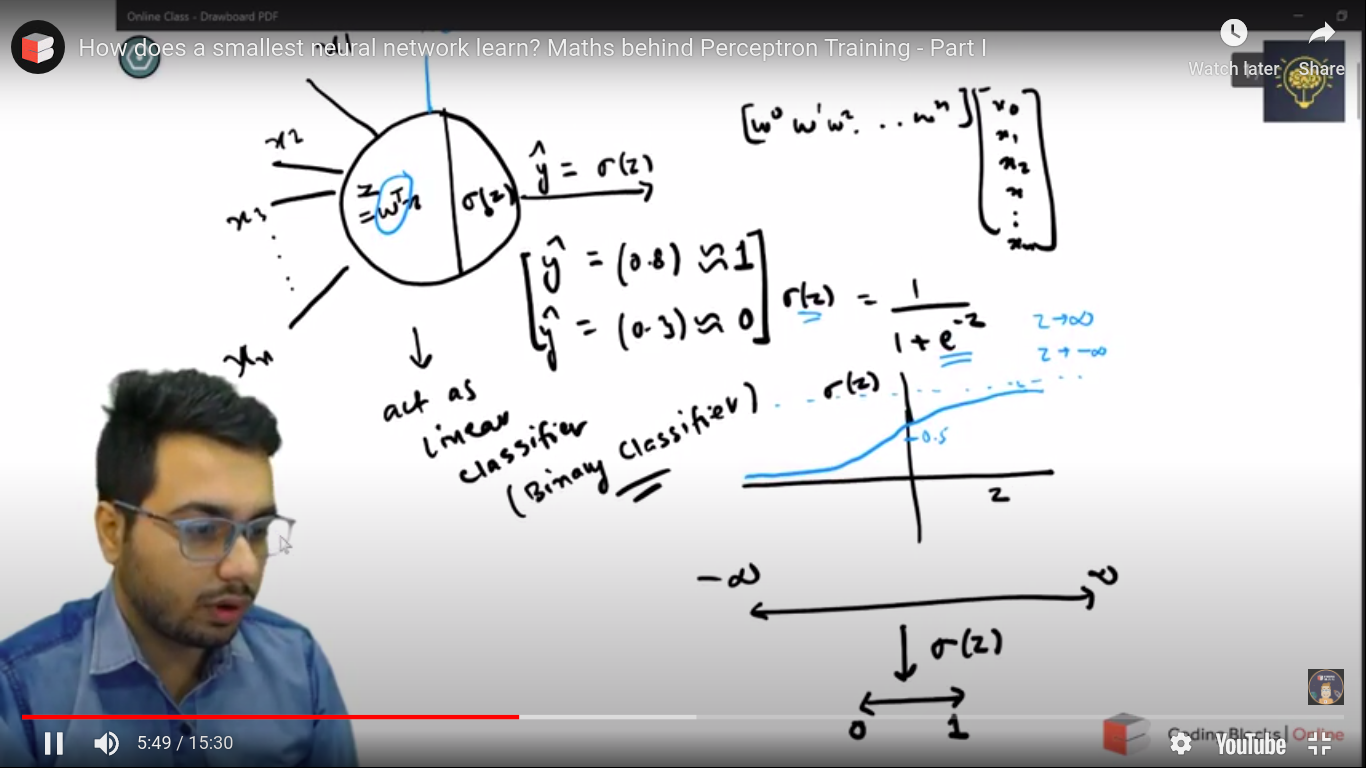 Online Class - Drawboard PDF
How does a smallest neural network learn? Maths behind Perceptron Training - Part I
Watch later
Share
x1
x2
x3
xn
z
= wᵀx
σ(z)
ŷ = σ(z)
[w⁰ w¹ w² . . . wⁿ]
x₀
x₁
x₂
x
⋮
ŷ = (0.8) ≈ 1
ŷ = (0.3) ≈ 0
σ(z) = 1 / 1 + e⁻ᶻ
z → ∞
z → -∞
act as
linear
classifier
(Binary Classifier)
σ(z)
0.5
z
-∞ ∞
σ(z)
0 1
5:49 / 15:30
Coding Blocks | Online
YouTube